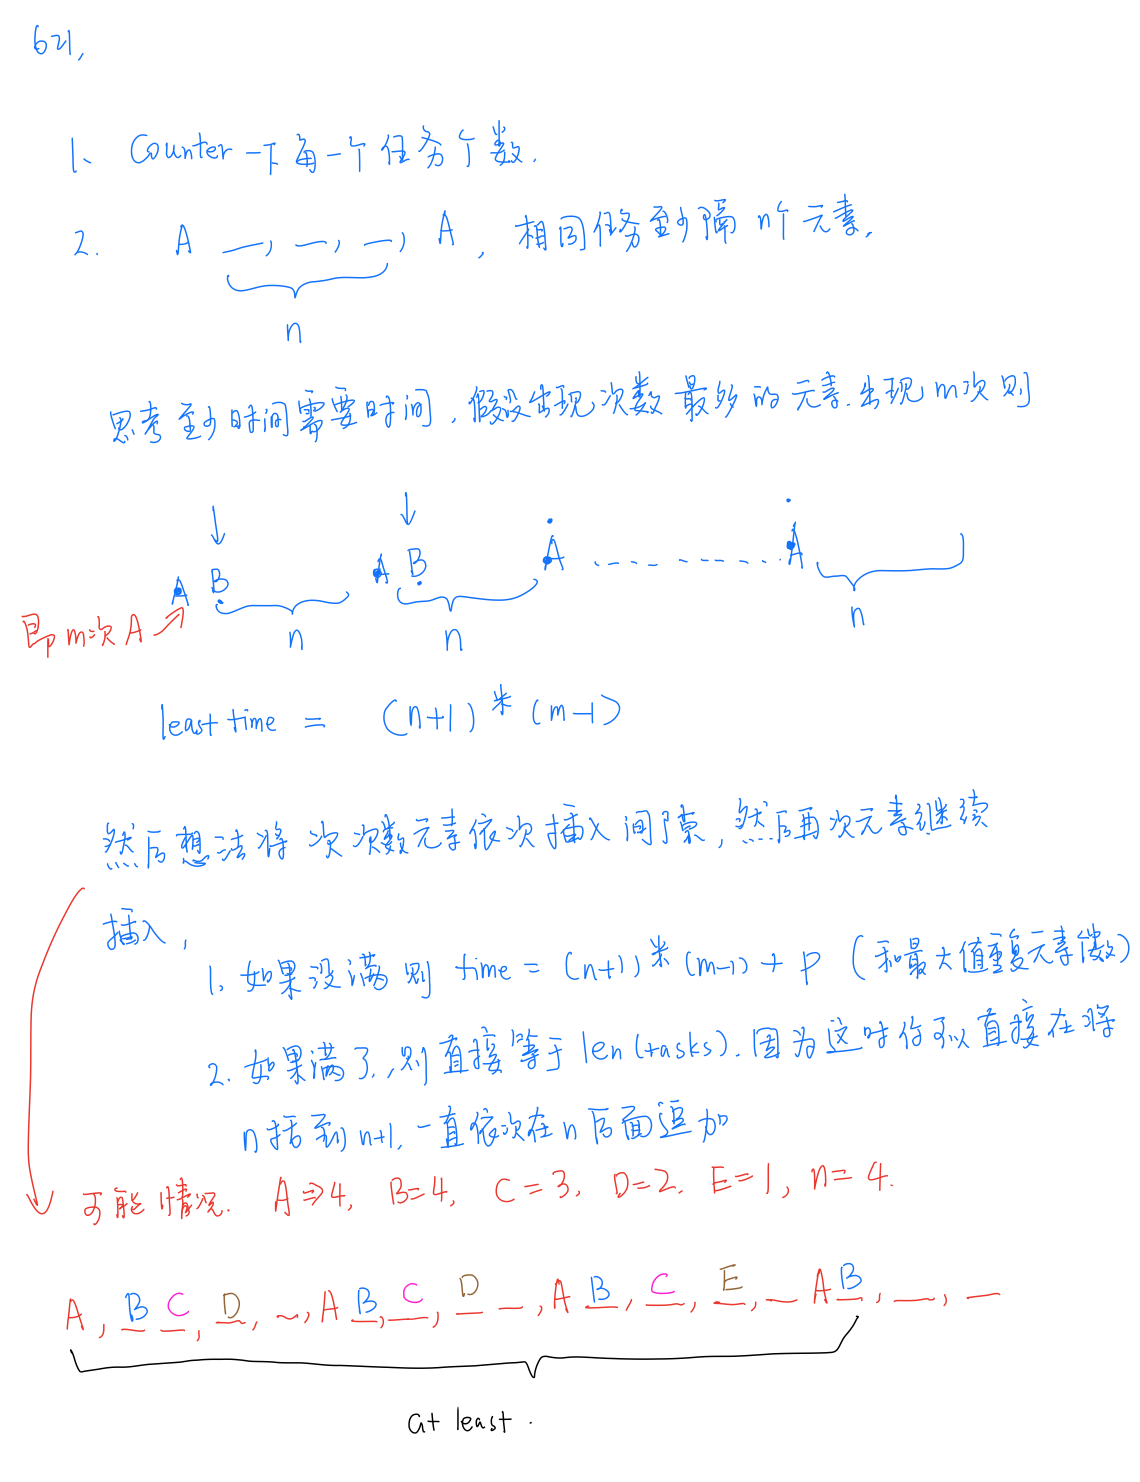 621,
1、 Counter 一下每一个任务个数.
2. A __, __, __, A , 相同任务至少隔 n个 元素,
n
思考至少时间需要时间, 假设出现次数最多的元素.出现 m次 则
↓ ↓
A B A B A ............ A
即 m次 A →
n n n
least time = (n+1) * (m-1)
然后想法将次次数元素依次插入间隙, 然后再次元素继续
插入,
1. 如果没满则 time = (n+1) * (m-1) + p (和最大值重复元素个数)
2. 如果满了, 则直接等于 len(tasks). 因为这时你可以直接在将
n 括到 n+1, 一直依次在 n 后面追加
可能情况. A⇒4, B=4, C=3, D=2. E=1, n=4.
A, B C, D, _, A B, C, D _, A B, C, E, _ A B, __, __
at least .